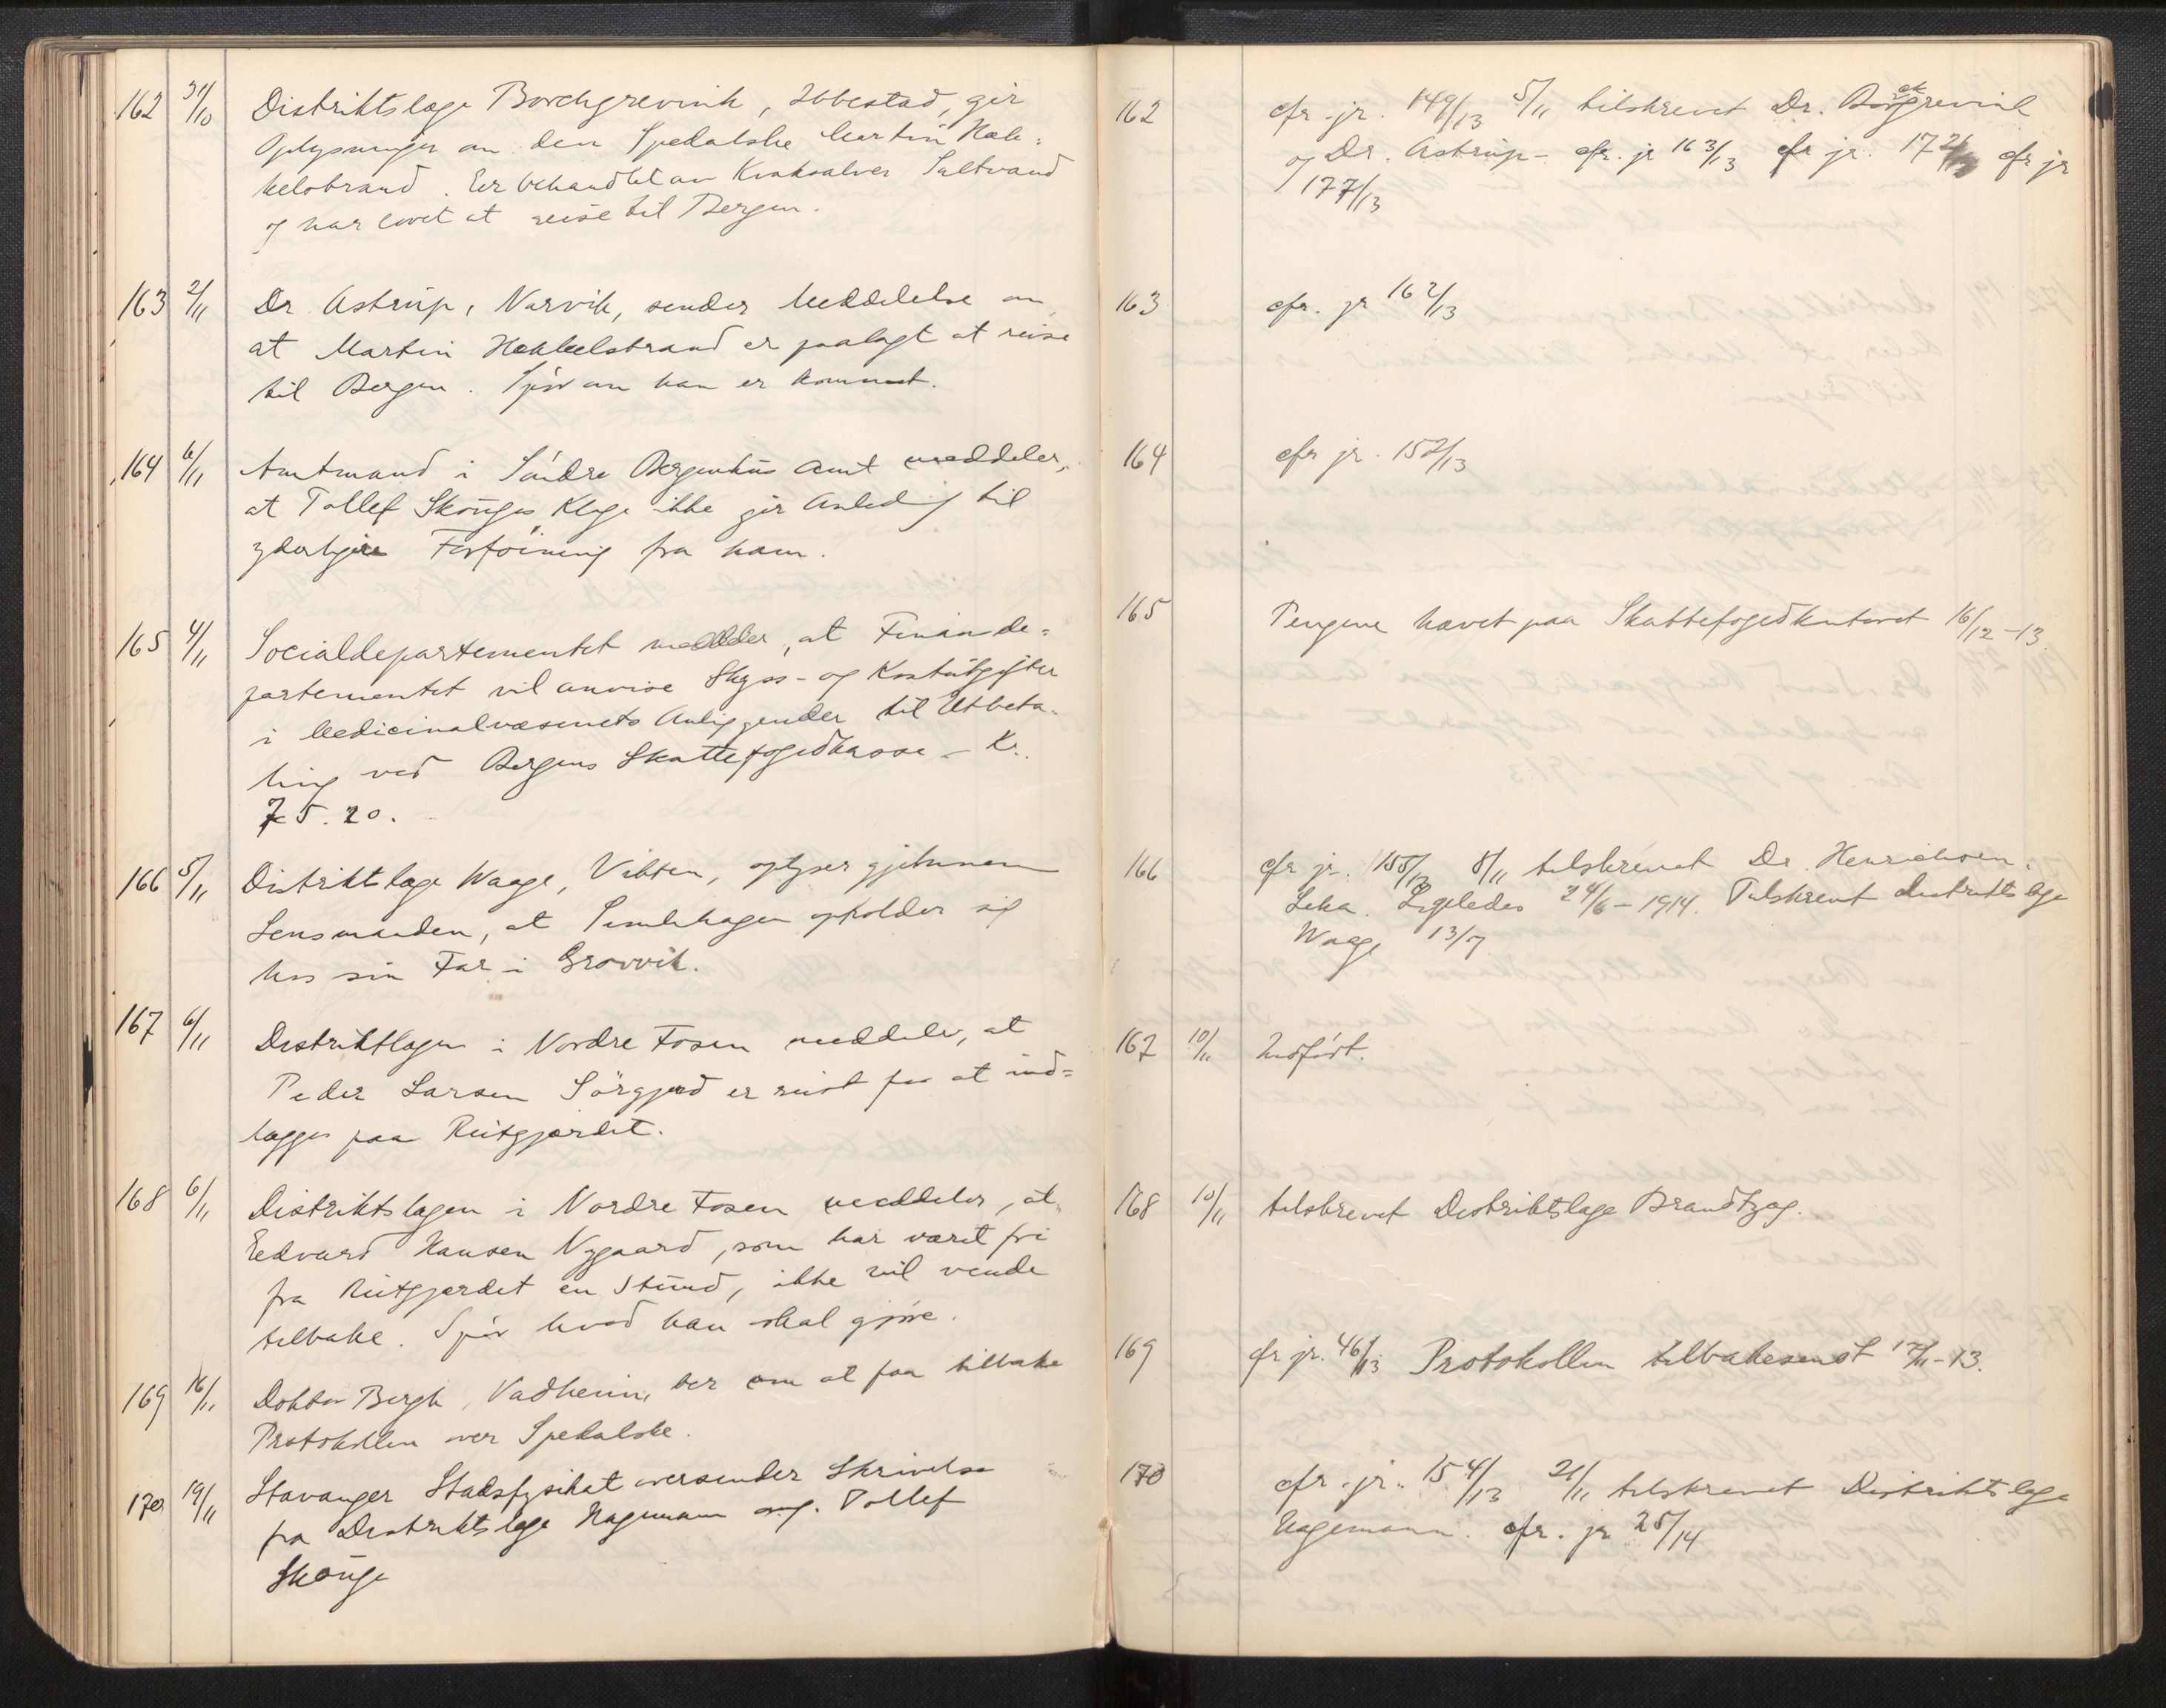 162 31/10 Distriktslæge Borchgrevink, Ibbestad, gir
Oplysninger om den Spedalske Martin Hæk=
kelstrand. Er behandlet av Kvaksalver Saltvand
og har lovet at reise til Bergen.
163 2/11 Dr Astrup, Narvik, sender Meddelelse om
at Martin Hækkelstrand er paalagt at reise
til Bergen. Spør om han er kommet.
164 6/11 Amtmand i Söndre Bergenhus Amt meddeler,
at Tollef Skouges Klage ikke gir Anledning til
yderligere Forföining fra ham.
165 4/11 Socialdepartementet meddeler, at Finansde=
partementet vil anvise Skyss- og Kostutgifter
i Medicinalvæsenets Anliggender til Utbeta-
ling ved Bergens Skattefogedkasse - Kr.
75.20.
166 5/11 Distriktslæge Waage, Vikten, oplyser gjennem
Lensmanden, at opholder sig
hos sin Far i Grovvik.
167 6/11 Distriktlægen i Nordre Fosen meddeler, at
Peder Larsen Sörgjerd er reist for at ind=
lægges paa Reitgjærdet.
168 6/11 Distriktslægen i Nordre Fosen meddeler, at
Edvard Hansen Nygaard, som har været fri
fra Reitgjerdet en Stund, ikke vil vende
tilbake. Spör hvad han skal gjöre.
169 16/11 Doktor Bergh, Vadheim, ber om at faa tilbake
Protokollen over Spedalske.
170 19/11 Stavanger Stadsfysikat oversender Skrivelse
fra Distriktslæge Hagemann ang. Tollef
Skouge
162 cfr. jr. 149/13 5/11 tilskrevet Dr. Borchgrevink
og Dr. Astrup - cfr. jr 163/13 cfr jr. 172/13 cfr jr
177/13
163 cfr. jr 162/13
164 cfr jr. 152/13
165 Pengene hævet paa Skattefogedkontoret 16/12-13.
166 cfr jr. 155/13 8/11 tilskrevet Dr. Henrichsen,
Leka. Ligeledes 24/6-1914. Tilskrevet Distriktslæge
Waage 13/7
167 10/11 Indfört.
168 10/11 tilskrevet Distriktslæge Brandtzæg.
169 cfr jr. 46/13 Protokollen tilbakesendt 17/11-13.
170 cfr. jr. 154/13 21/11 tilskrevet Distriktslæge
Hagemann. cfr. jr 25/14